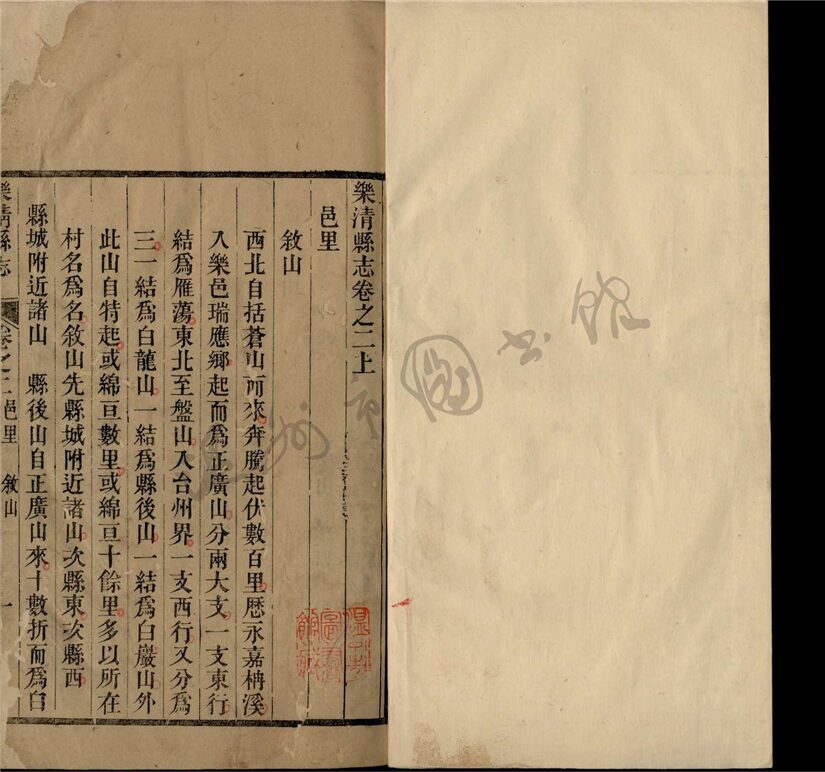 樂清縣志卷之二上
邑里
敘山
西北自括蒼山而來奔騰起伏數百里歷永嘉楠溪
入樂邑瑞應鄉起而爲正廣山分兩大支一支東行
結爲雁蕩東北至盤山入台州界一支西行又分爲
三一結爲白龍山一結爲縣後山一結爲白巖山外
此山自特起或綿亘數里或綿亘十餘里多以所在
村名爲名敘山先縣城附近諸山次縣東次縣西
縣城附近諸山 縣後山自正廣山來十數折而爲白
樂清縣志 卷之二邑里 敘山 一
州市圖書館